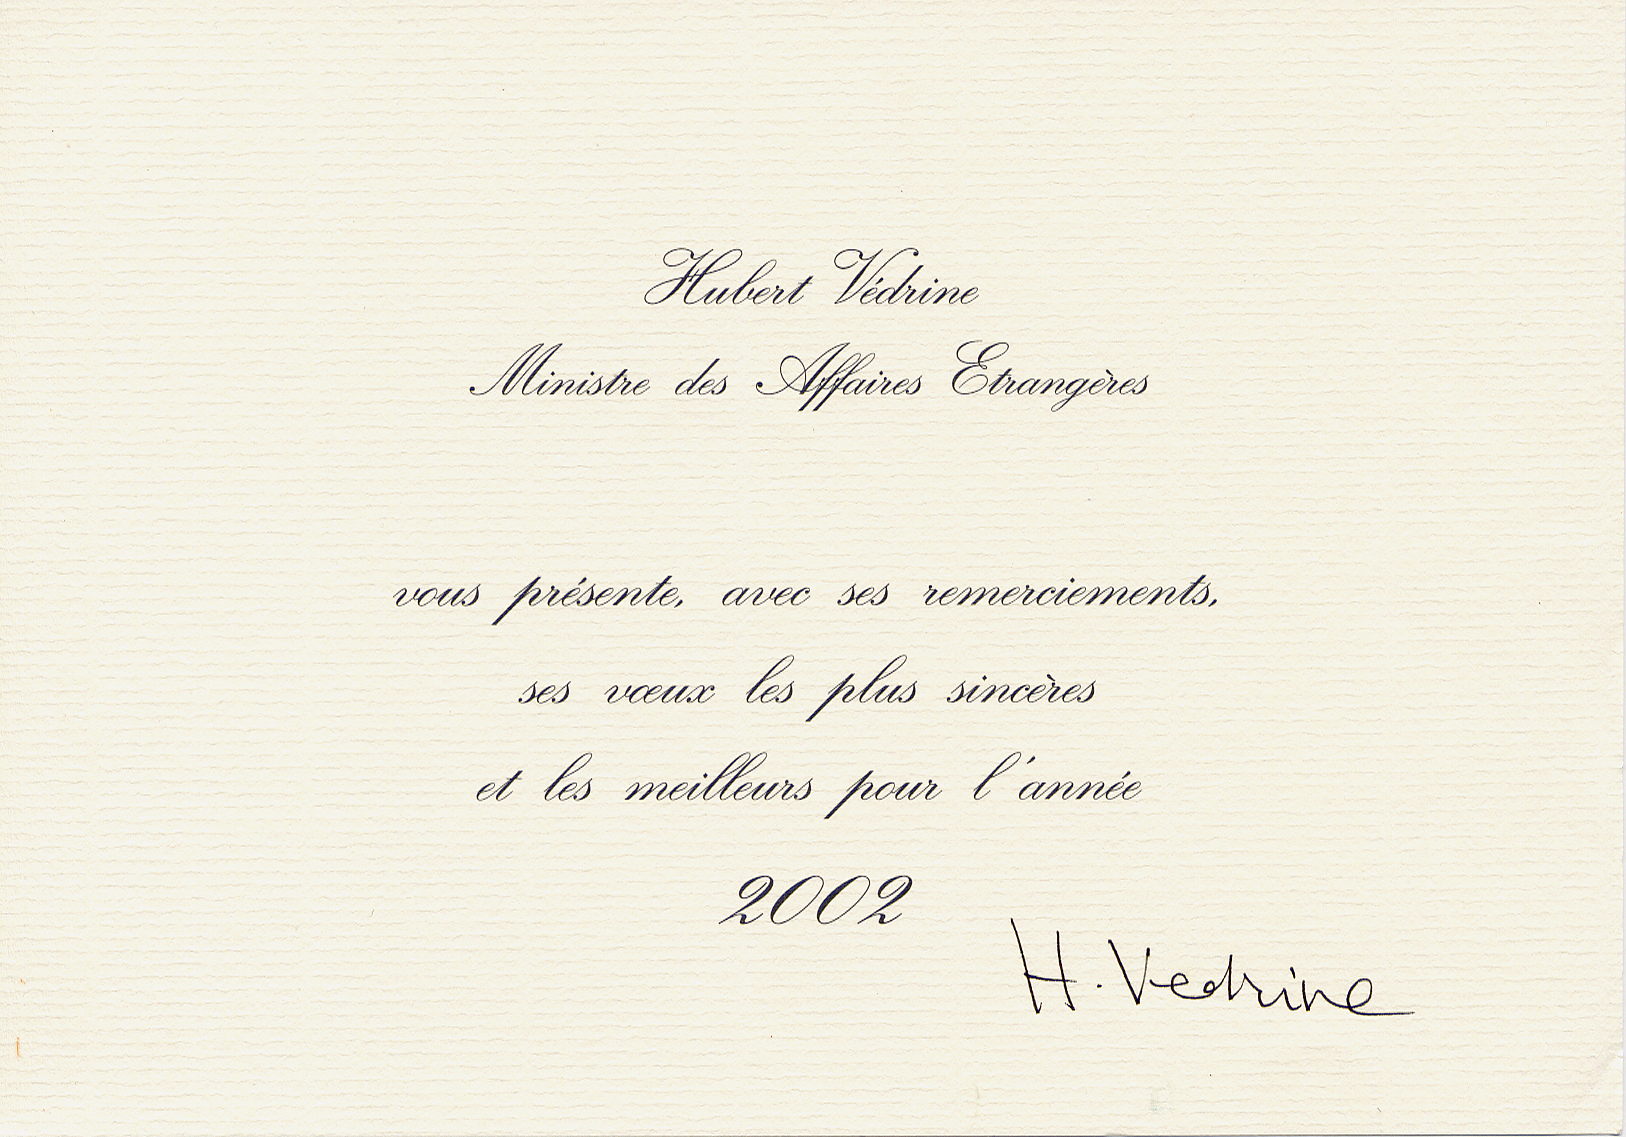 Hubert Védrine
Ministre des Affaires Etrangères
vous présente, avec ses remerciements,
ses vœux les plus sincères
et les meilleurs pour l'année
2002
H. Vedrine